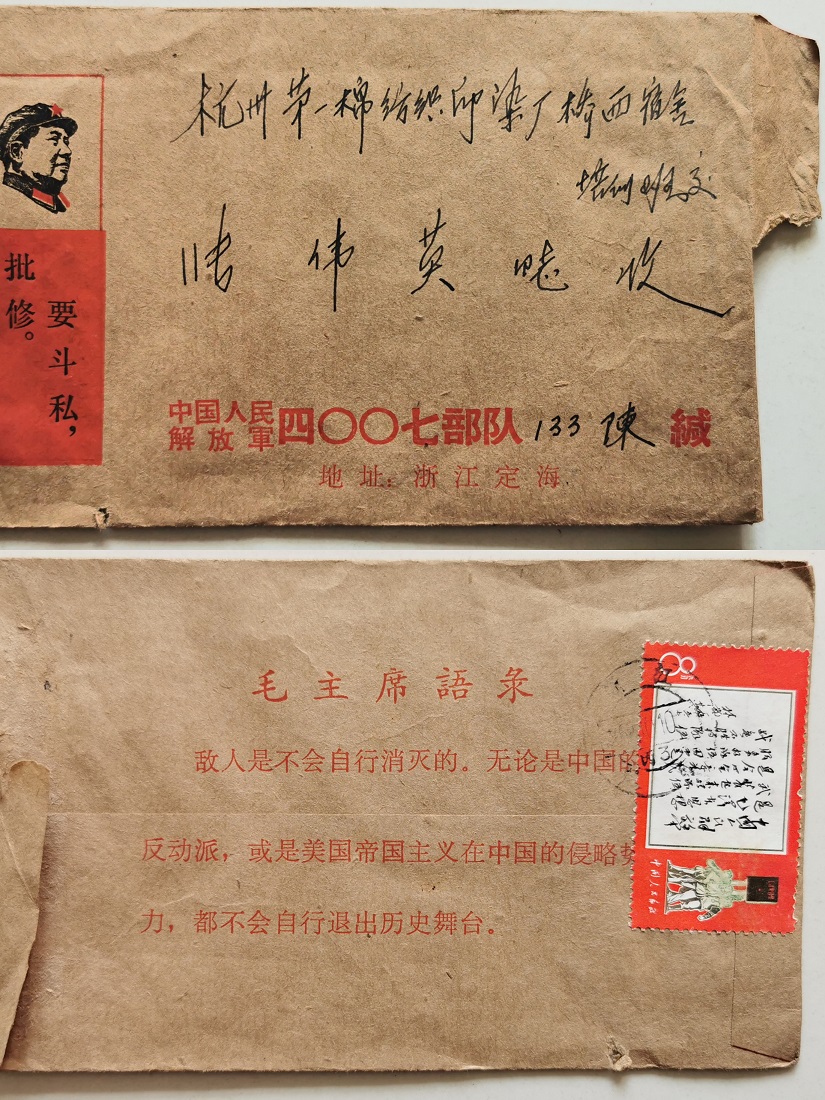 杭州第一棉纺织印染厂桥西宿舍
培训班交
张伟英 收
要斗私，
批修。
中国人民
解放軍
四〇〇七部队 133 陳 緘
地址：浙江定海
毛主席語录
敌人是不会自行消灭的。无论是中国的
反动派，或是美国帝国主义在中国的侵略势
力，都不会自行退出历史舞台。
8
中国人民邮政